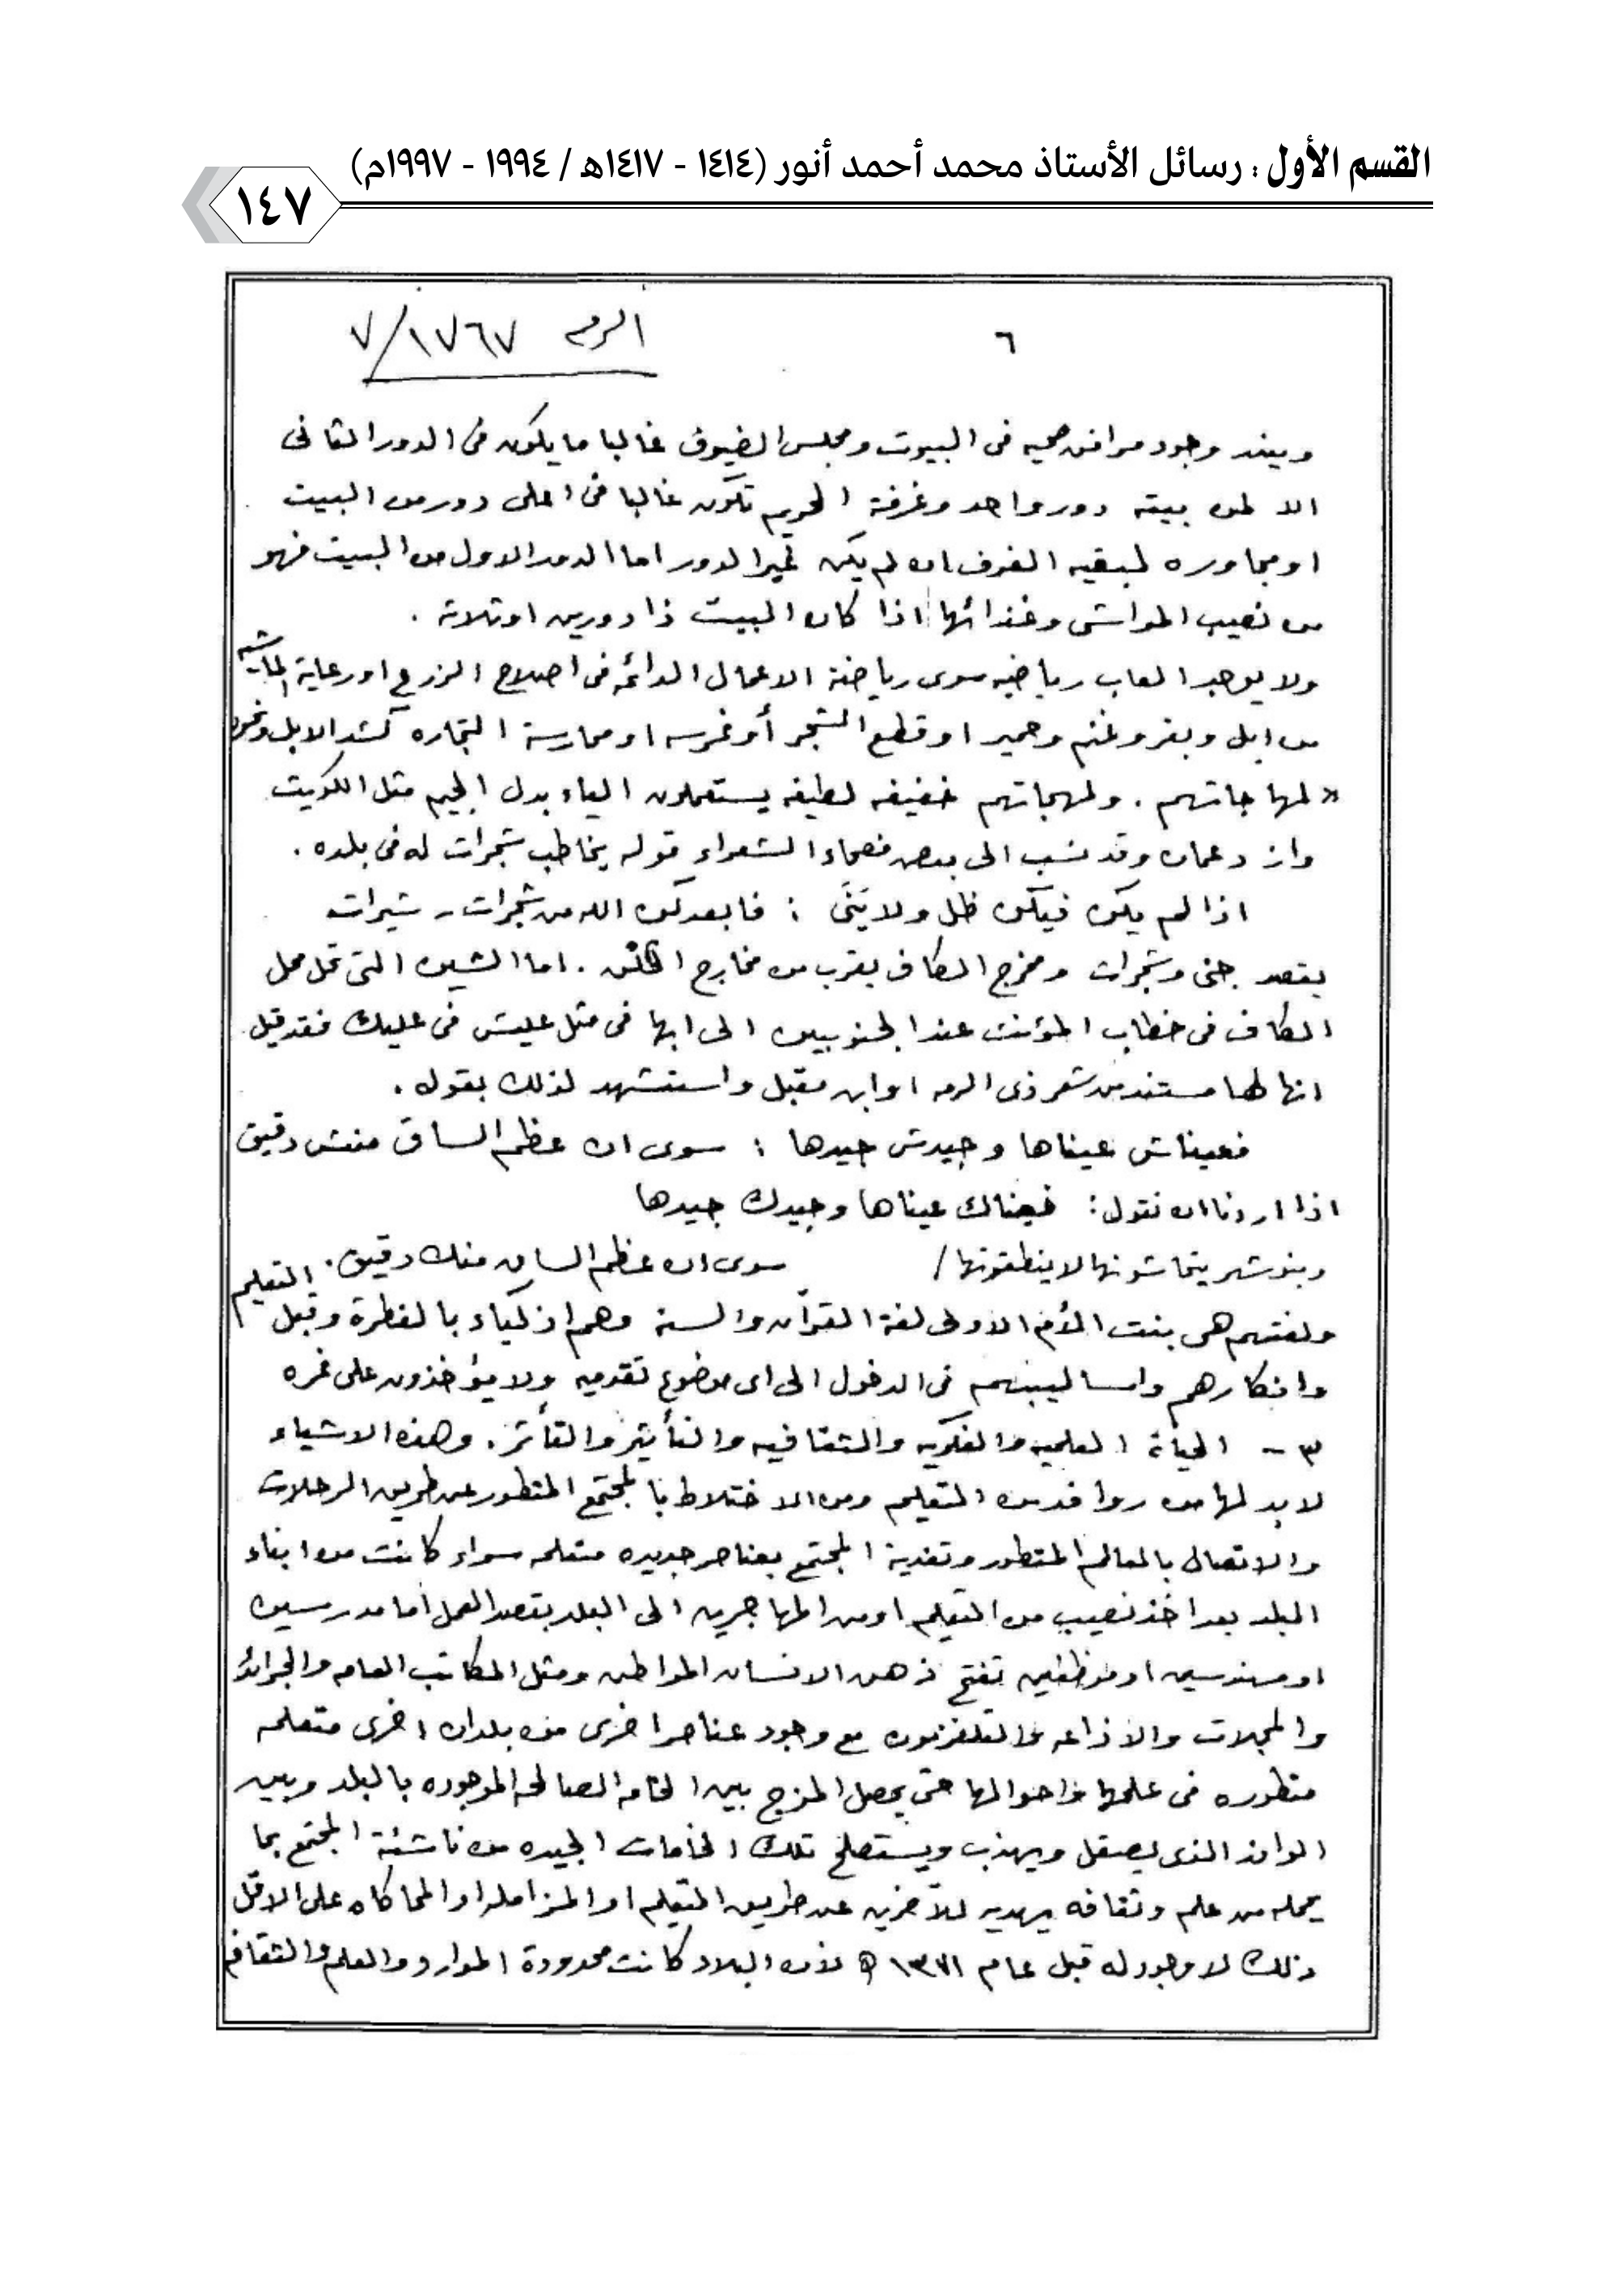 القسم الأول : رسائل الأستاذ محمد أحمد أنور (١٤١٤ - ١٤١٧هـ / ١٩٩٤ - ١٩٩٧م)
١٤٧
٦ الرقم ٧/١٧٦٧
ويندر وجود مرافق صحيه فى البيوت ومجلس الضيوف غالبا ما يكون فى الدور الثانى
الا لمن بيته دور واحد وغرفة الحريم تكون غالبا فى اعلى دور من البيت
او مجاوره لبقيه الغرف ان لم يكن غير الدور اما الدور الاول من البيت فهو
من نصيب المواشى وغذائها اذا كان البيت ذا دورين او ثلاثه .
ولا يوجد العاب رياضيه سوى رياضة الاعمال الدائمه فى اصلاح الزرع او رعاية الماشيه
من ابل وبقر وغنم وحمير او قطع الشجر أو غرسه او ممارسة التجاره كشد الابل ونحوه
« لهاجاتهم . ولهجاتهم خفيفه لطيفه يستعملون الياء بدل الجيم مثل الكويت
وازد عمان وقد نسب الى بعض فصحاء الشعراء قوله يخاطب شجرات له فى بلده .
اذا لم يكن فيكن ظل ولا يَنَى : فابعدكن الله من شجرات - شيرات
يقصد جنى وشجرات ومخرج الكاف يقرب من مخارج . اما الشين التى تحل محل
الكاف فى خطاب المؤنث عند الجنوبيين الى ابها فى مثل عليش فى عليك فقد قيل
انها لها مستند من شعر ذى الرمه او ابن مقبل واستشهد لذلك بقوله .
فعيناش عيناها وجيدش جيدها : سوى ان عظم الساق منش دقيق
اذا اردنا ان نقول : فعيناك عيناها وجيدك جيدها
وبنو شهر يتحاشونها لا ينطقونها / سوى ان عظم الساق منك دقيق .
ولغتهم هى بنت الأم الاولى لغة القرآن والسنه وهم اذكياء بالفطرة وقبل التعليم
وافكارهم واساليبهم فى الدخول الى اى موضوع تقدميه ولا يؤخذون على غره
٣ - الحياة العلميه والفكريه والثقافيه والتأثير والتأثر . وهذه الاشياء
لابد لها من روافد من التعليم ومن الاختلاط بالمجتمع المتطور عن طريق الرحلات
والاتصال بالعالم المتطور وتغذية المجتمع بعناصر جديده متعلمه سواء كانت من ابناء
البلد بعد اخذ نصيب من التعليم او من المهاجرين الى البلد بقصد العمل اما مدرسين
او مهندسين او موظفين تفتح ذهن الانسان المواطن ومثل المكاتب العامه والجرائد
والمجلات والاذاعه والتلفزيون مع وجود عناصر اخرى من بلدان اخرى متعلمه
متطوره فى علمها واحوالها حتى يحصل المزج بين الخامه الصالحه الموجوده بالبلد وبين
الوافد الذى يصقل ويهذب ويستصلح تلك الخامات الجيده من ناشئة المجتمع بما
يحمله من علم وثقافه يهديه للآخرين عن طريق التعليم او المزامله او المحاكاه على الاقل
ذلك لا وجود له قبل عام ١٣٧١ هـ لأن البلاد كانت محدودة الموارد والعلم والثقافه